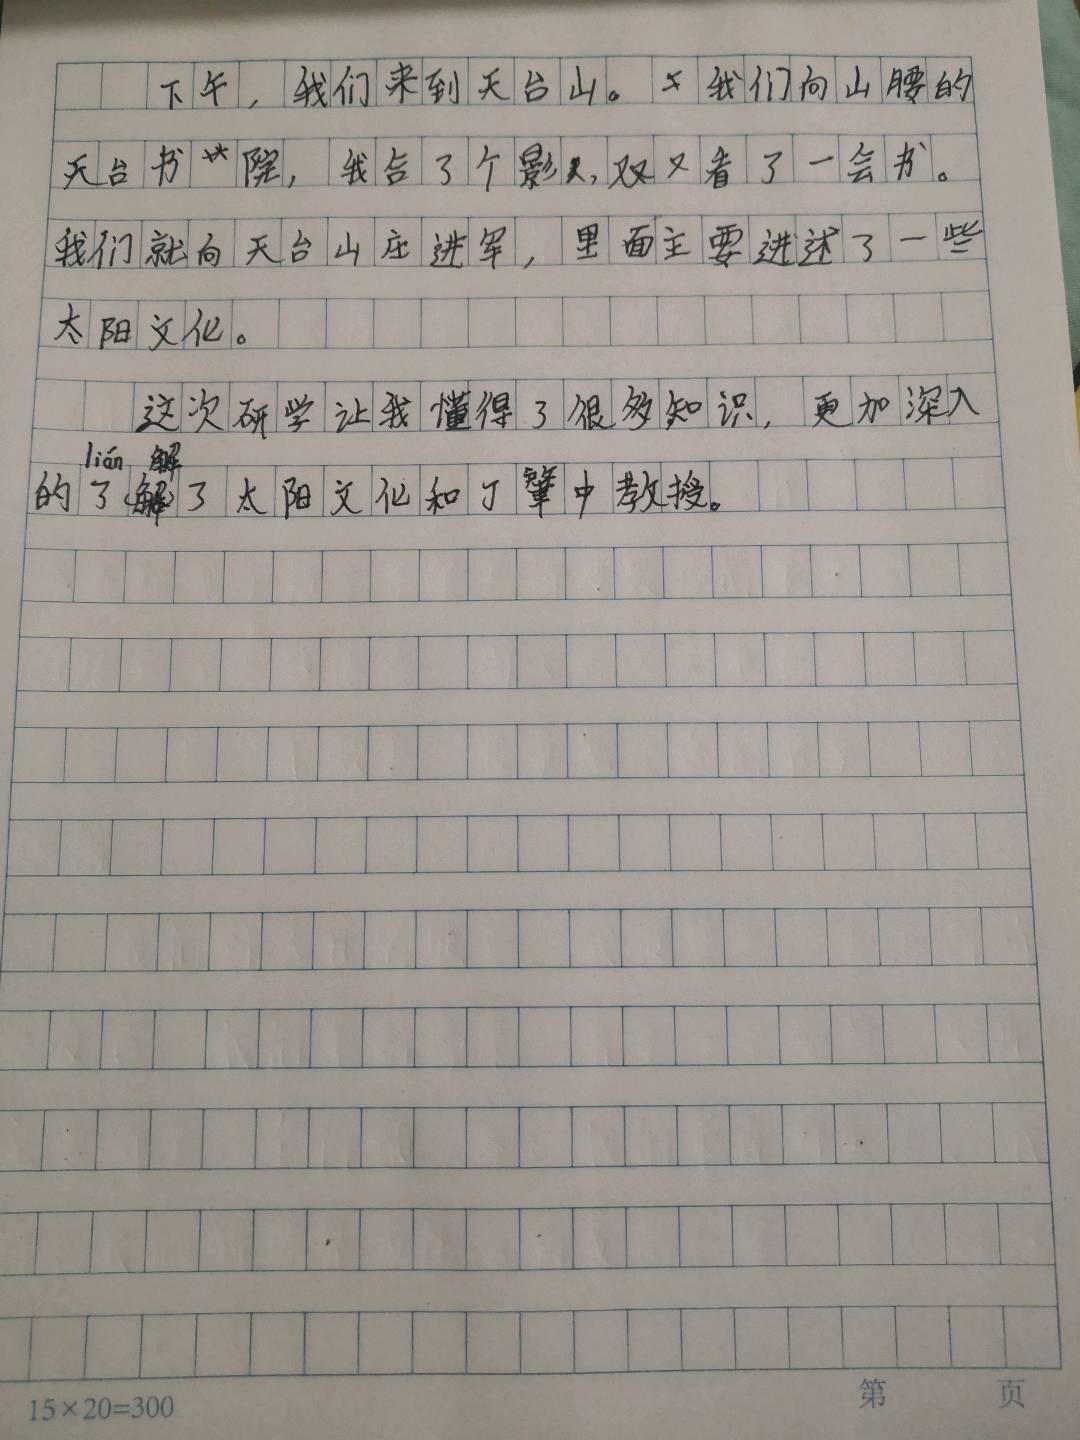 下午，我们来到天台山。我们向山腰的
天台书院，我合了个影，又看了一会书。
我们就向天台山庄进军，里面主要讲述了一些
太阳文化。
这次研学让我懂得了很多知识，更加深入
liǎn 解
的了解了太阳文化和丁肇中教授。
15×20=300 第 页